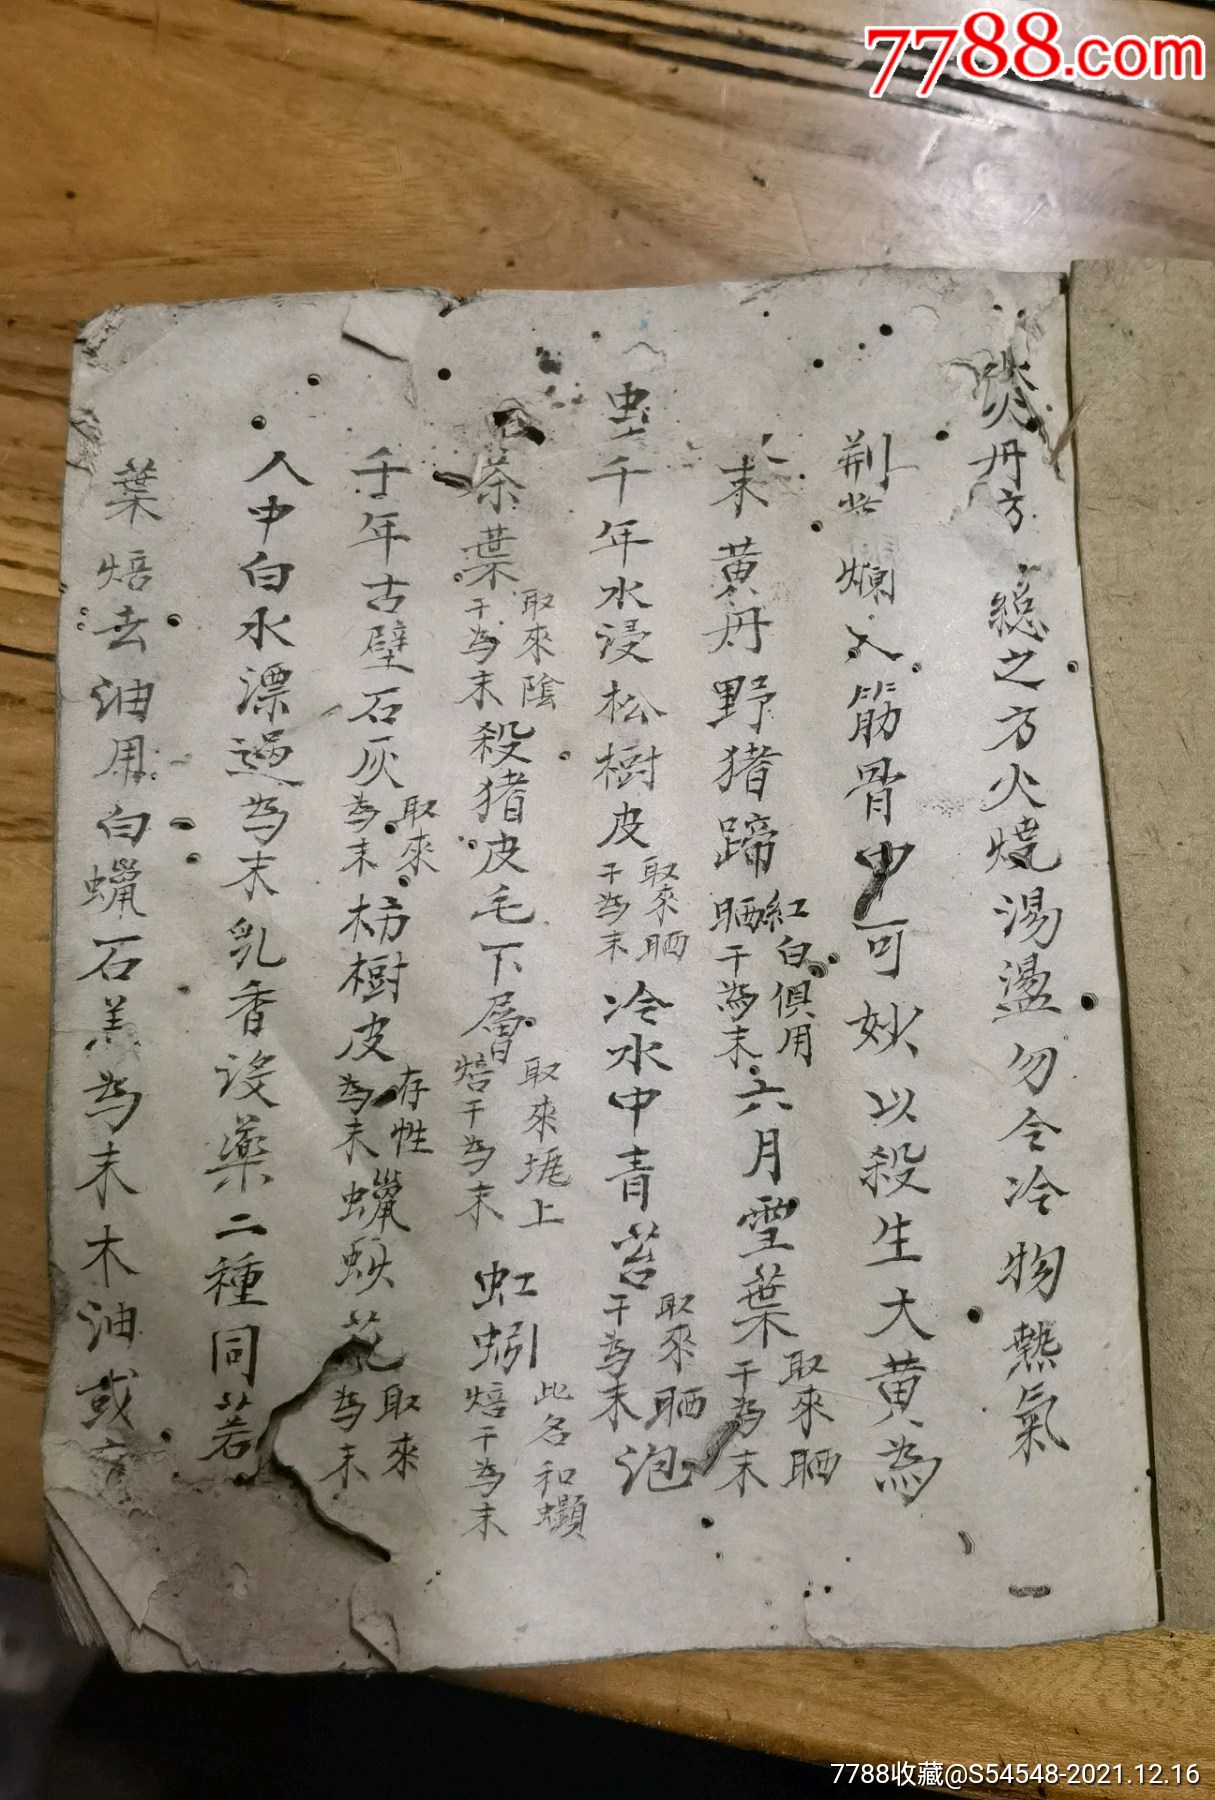 7788.com
丹方 總之方火燒湯盪勿令冷物熱氣
荆 爛入筋骨中可妙以殺生大黃為
末黃丹野猪蹄紅白俱用晒干為末六月雪葉取來晒干為末
千年水浸松樹皮取來晒干為末冷水中青苔取來晒干為末泡
茶葉取來陰干為末殺猪皮毛下層取來 上焙干為末虹蚓此名和 焙干為末
千年古壁石灰取來為末 樹皮存性為末蠟 花取來為末
人中白水漂過為末乳香沒藥二種同若
葉焙去油用白蠟石羔為末木油或
7788收藏@S54548-2021.12.16